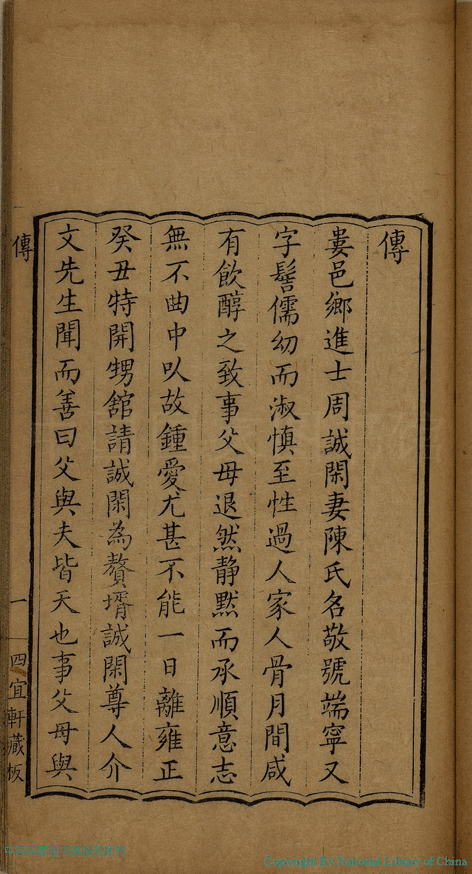 傳
婁邑鄉進士周誠閑妻陳氏名敬號端寧又
字髻儒幼而淑慎至性過人家人骨月間咸
有飲醇之致事父母退然静默而承順意志
無不曲中以故鍾愛尤甚不能一日離雍正
癸丑特開甥舘請誠閑為贅壻誠閑尊人介
文先生聞而善曰父與夫皆天也事父母與
傳
一
四宜軒藏板
Copyright by National Library of China